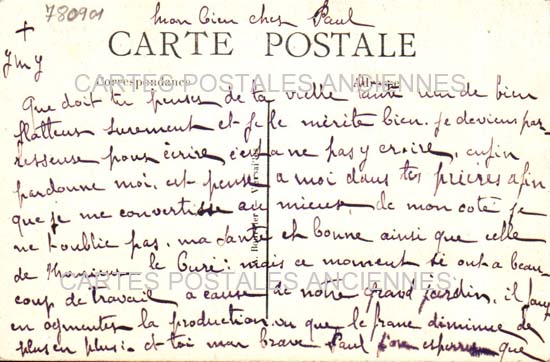 780901
mon bien cher Paul
+
J M J
CARTE POSTALE
CARTES POSTALES ANCIENNES
Correspondance
Adresse
Que doit tu penser de ta vieille amie rien de bien
flatteur surement et je le mérite bien. je deviens par
resseuse pour écrire c'est a ne pas y croire, enfin
pardonne moi. et pense a moi dans tes prieres afin
que je me convertisse au mieux, de mon coté je
ne t'oublie pas. ma santé et bonne ainsi que celle
de Monsieur le Curé: mais ce moment si ont a beau
CARTES POSTALES ANCIENNES
coup de travail a cause de notre Grand jardin, il faut
en augmenter la production vu que le franc diminue de
plus en plus. et toi mon brave Paul j'en esperre que